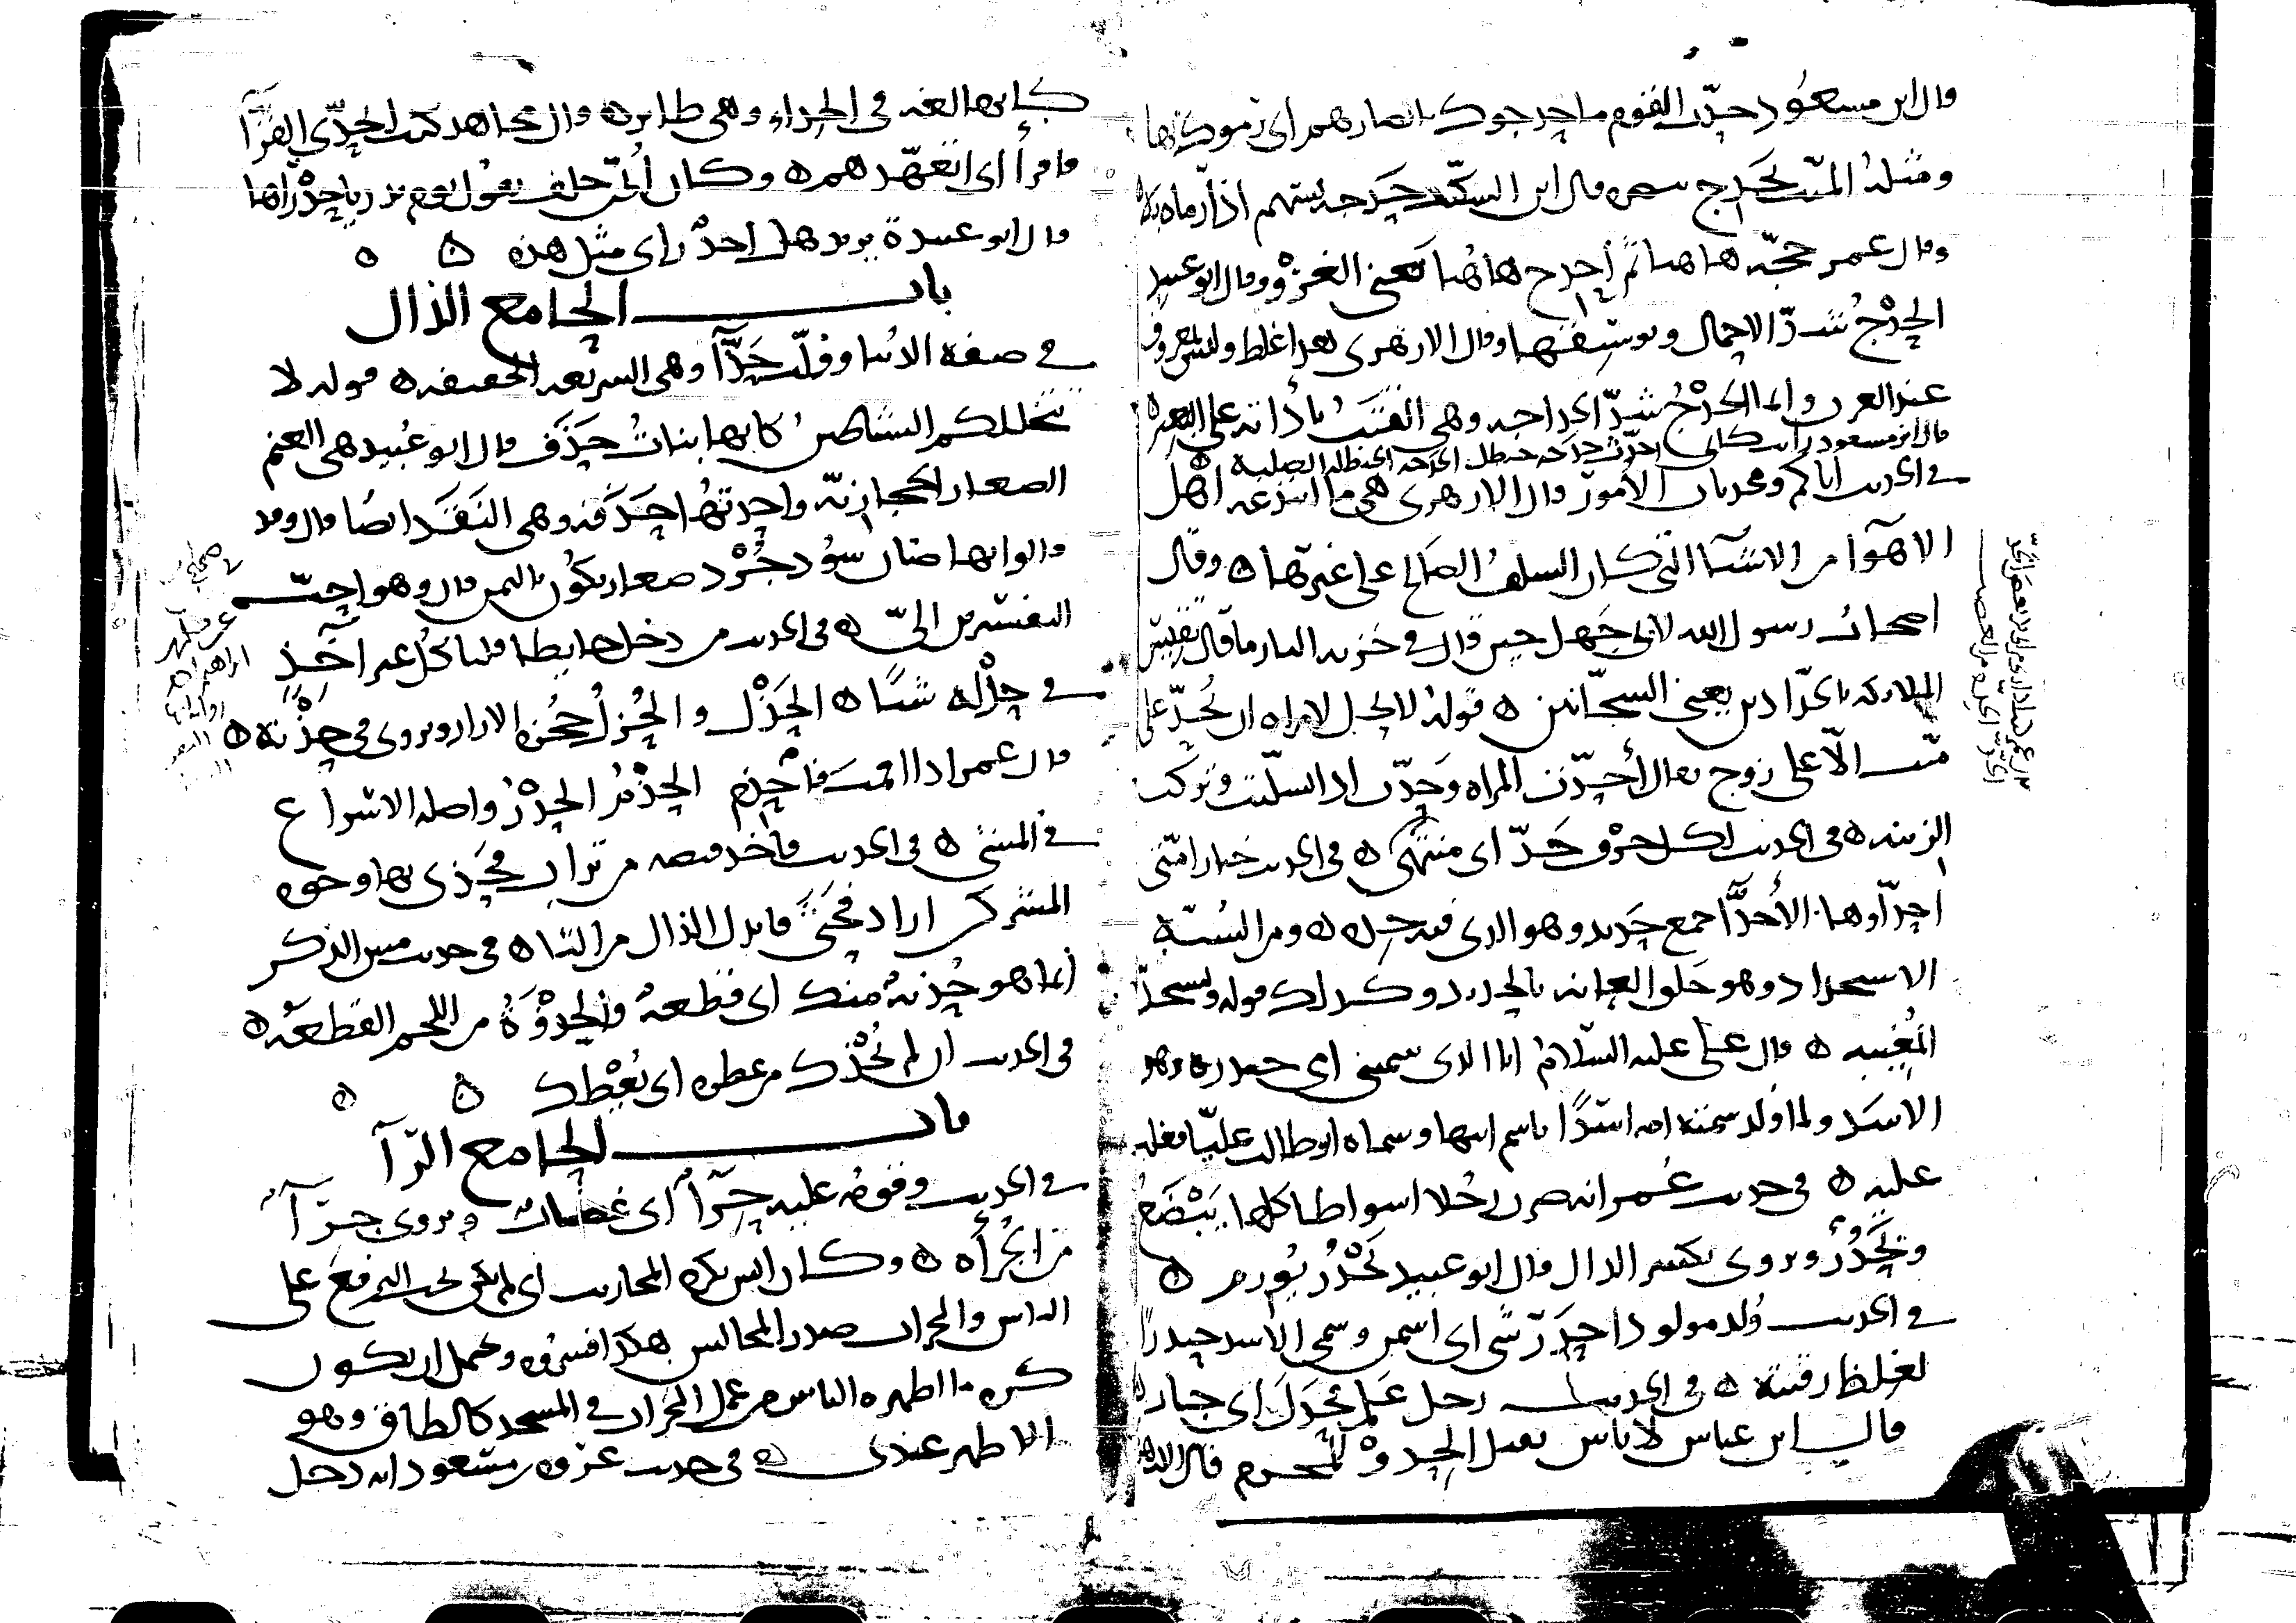 قال ابن مسعود حدّث القوم ما حدجوك بابصارهم اي رموك بها
ومثله الميت يحدج ببصره قال ابن السكيت حدجه بسهم اذا رماه به
وقال عمر حجّة هاهنا ثم احدج هاهنا يعني الغزو وقال ابو عبيد
الحدج شدّ الاحمال وتوسيقها وقال الازهري هذا غلط وليس بمعروف
عند العرب وانما الحدج شدّ الحداجه وهي القتب باداته على البعير
قال ابن مسعود رايت كاني اخذت حدجة حنظل الحدجه الحنظله الصلبة
في الحديث اياكم ومحدثات الامور قال الازهري هي ما ابتدعه اهل
الاهوا من الاشيا التي كان السلف الصالح على غيرها ه وقال
اصحاب رسول الله لابي جهل حين قال في خزنه النار ما قال تقيس
الملائكه بالحدّادين يعني السجّانين ه قوله لا يحل لامراه ان تحدّ على
ميّت الّا على زوج يقال أحدّت المراه وحدّت اذا تسلّبت وتركت
الزينه ه في الحديث لكل حرف حدّ اي منتهى ه في الحديث خيار امتي
احدّاوها الأحدّا جمع حديد وهو الذي فيه حده ه ومن السنّة
الاستحداد وهو حلق العانه بالحديد وكذلك قوله وتستحدّ
المُغيبه ه قال علي عليه السلام انا الذي سمتني امي حيدره وهو
الاسد ولما ولد سمته امه اسدًا باسم ابيها وسماه ابو طالب عليّا فغلب
عليه ه في حديث عُمر انه ضرب رجلا اسواطا كلها يَبْضَعُ
ويَحْدُرُ ويروى بكسر الدال قال ابو عبيد يَحْدُرُ يُورم ه
في الحديث وُلد مولود احدر شي اي اسمن وسمي الاسد حيدرًا
لغلظ رقبته ه في الحديث رجل علم فحدل اي جار
قال ابن عباس لا باس بقتل الحدو للمحرم قال
كانها لغه في الحداء وهي طاير ه وقال مجاهد كنت اتحدّى القرّآ
فاقرأ اي اتعهّدهم ه وكان أبيّ خلف يقول يوم بدر يا حدراها
قال ابو عبيدة يريد هل احد راى مثل هذه ه ه
باب الحا مع الذال
في صفة الدنيا وولّت حذّآ وهي السريعه الخفيفه ه قوله لا
تتخللكم الشياطين كانها بناتُ حذَف قال ابو عبيد هي الغنم
الصغار الحجازيّة واحدتها حَذَفَة وهي النَقَد ايضا قال وقد
قالوا انها ضان سُود جُرْد صغار تكون باليمن قال وهو احبّ
التفسيرين اليّ ه في الحديث من دخل حايطا فلياكل غير آخذ
في حذله شيا ه الحَذْل والحُذل حُجُزه الازار ويروى في حِذْنه ه
قال عمر اذا اقمت فاحذم الحذم الحدر واصله الاسراع
في المشي ه في الحديث فاخذ قبضه من تراب فحذى بها وجوه
المشركين اراد فحثى فابدل الذال من الثا ه في حديث مسّ الذكر
انما هو حُذيه منك اي قطعة والحِذْوَة من اللحم القطعه ه
في الحديث ان لم يُحْذك من عطره اي يُعْطك ه ه
باب الحا مع الرّآ
في الحديث وقومه عليه حرّآ اي غضاب ويروى جرّآ
من الجُرأه ه وكان انس يكره المحاريب اي لم يكن يحب الترفع على
الناس والمحراب صدر المجالس هكذا فسروه ويحتمل ان يكون
كره ما اظهره الناس من عمل المحراب في المسجد كالطاق وهو
الاظهر عندي ه في حديث عروه بن مسعود انه دخل